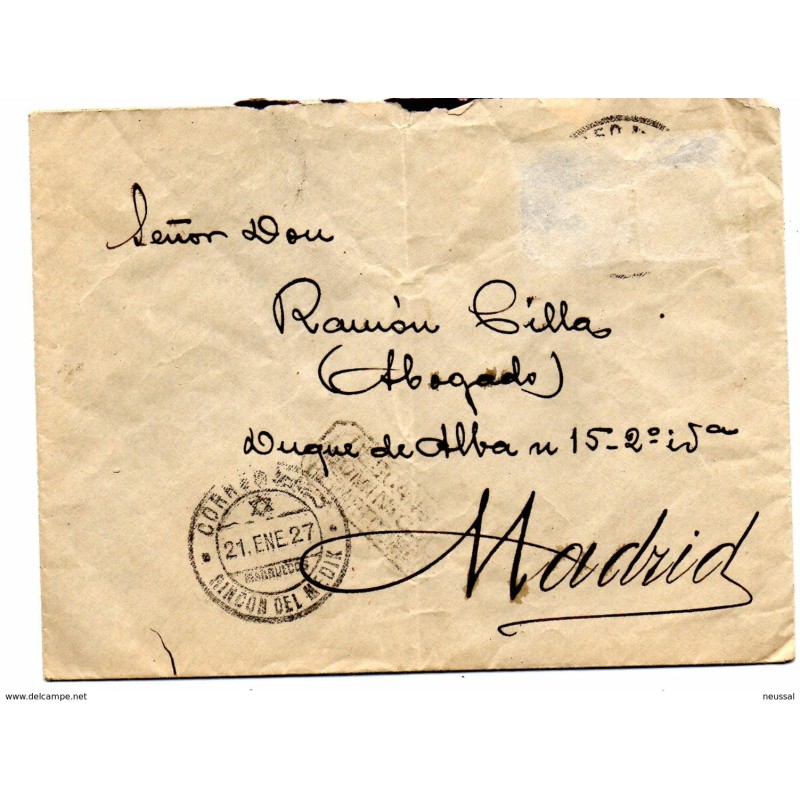 Señor Don
Ramón Cilla
(Abogado)
Duque de Alba n 15-2º izda
Madrid
CORREOS
21.ENE.27
MARRUECOS
RINCON DEL MEDIK
www.delcampe.net
neussal